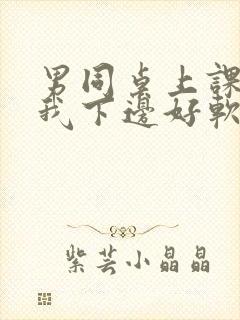 男同桌上課
我下邊好軟
紫芸小晶晶